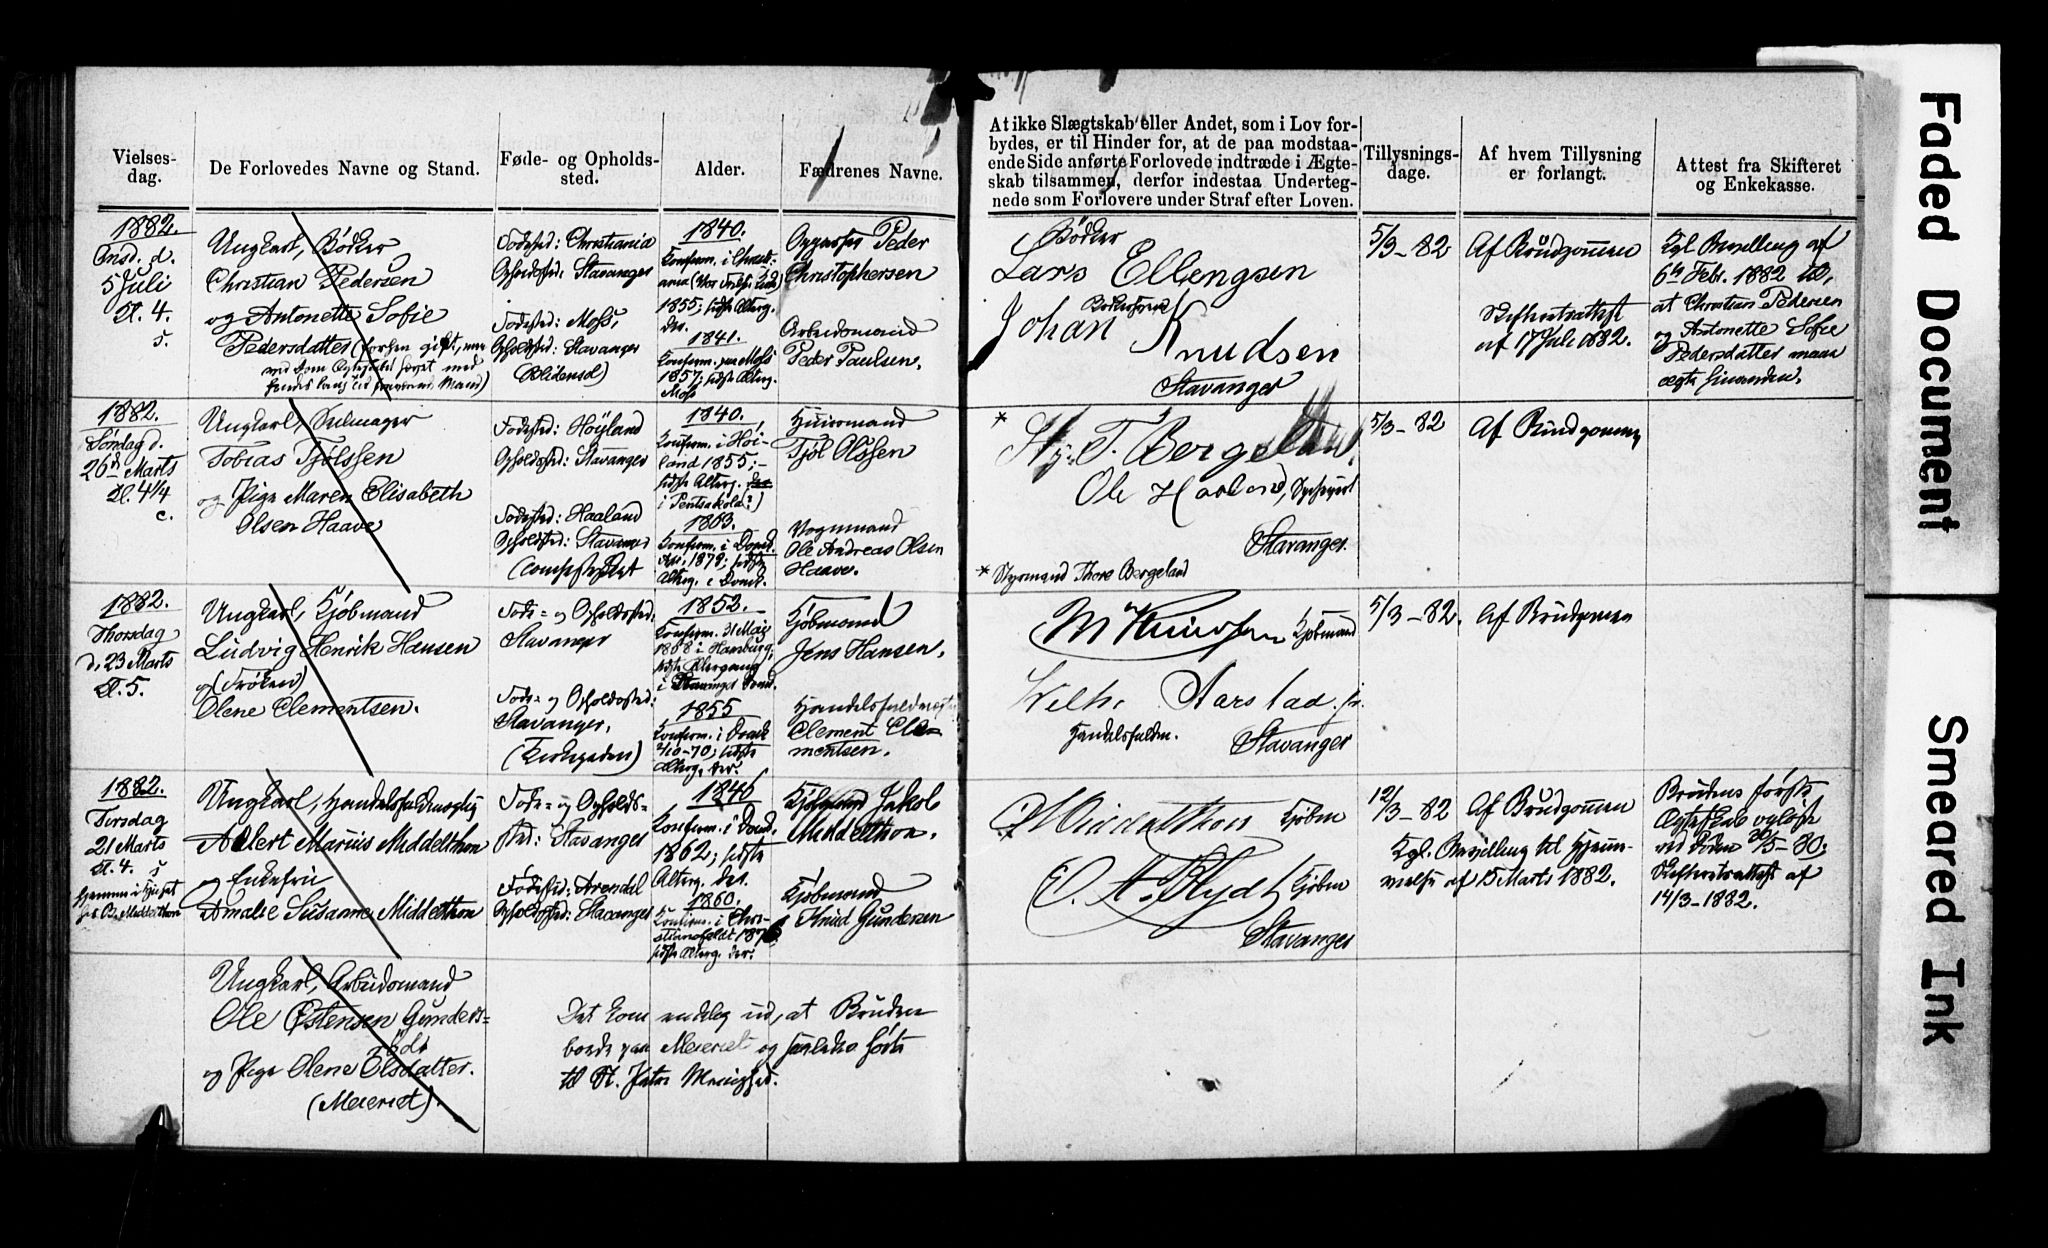 Vielses-
dag.
De Forlovedes Navne og Stand.
Føde- og Opholds-
sted.
Alder.
Fædrenes Navne.
At ikke Slægtskab eller Andet, som i Lov for-
bydes, er til Hinder for, at de paa modstaa-
ende Side anførte Forlovede indtræde i Ægte-
skab tilsammen, derfor indestaa Underteg-
nede som Forlovere under Straf efter Loven.
Tillysnings-
dage.
Af hvem Tillysning
er forlangt.
Attest fra Skifteret
og Enkekasse.
1882.
Onsd. d.
5 Juli
Kl. 4.
s.
Ungkarl, Bödker
Christian Pedersen
og Antonette Sofie
Pedersdatter (forhen gift, men
Fødested: Christiania
Opholdssted: Stavanger
Fødested: Moss,
Opholdssted: Stavanger
(Blidensol)
1840.
Konfirm. i Christi-
ania (Vor Frelsers Kirke)
1855; sidste Alterg.
do.
1841.
Konfirm. paa Moss
1857; sidste Alterg.
Moss
Peder
Christophersen
Arbeidsmand
Peder Paulsen.
Bödker
Lars Ellengsen
Johan Knudsen
Stavanger
5/3-82
Af Brudgommen
Skifteretsattest
af 17 Juli 1882.
Kgl. Bevilling af
6te Febr. 1882 til,
at Christian Pedersen
og Antonette Sofie
Pedersdatter maa
ægte hinanden.
1882.
Søndag d.
26de Marts
Kl. 4 1/4
e.
Ungkarl, Seilmager
Tobias Tjölssen
og Pige Maren Elisabeth
Olsen Haave
Fødested: Höyland
Opholdssted: Stavanger
Fødested: Haaland
Opholdssted: Stavanger
1840.
Konfirm. i Höi-
land 1855;
sidste Alterg.
i Pentsakola?)
1863.
Konfirm. i Domk.
1878; sidste
Alterg. i Domk.
Huusmand
Tjöl Olssen
Vognmand
Ole Andreas Olsen
Haave.
* T. Bergeland
Ole Haaland,
Stavanger.
* Styrmand Thore Bergeland
5/3-82
Af Brudgommen
1882.
Thorsdag
d. 23 Marts
Kl. 5.
Ungkarl, Kjöbmand
Ludvig Henrik Hansen
og (Fröken)
Olene Clementsen.
Føde- og Opholdssted:
Stavanger
Føde- og Opholdssted:
Stavanger,
(Kirkegaden)
1852.
Konfirm. 31 Mai
1868 i Hamburg,
sidste Altergang
i Stavanger Domk.
1855
Konfirm. i Domk
2/10-70; sidste
Alterg. der.
Kjöbmand
Jens Hansen.
Handelsfuldmægtig
Clement Cle-
mentsen.
Kjöbmand
Wilh. Aarstad jr.
Handelsfuldm.
Stavanger
5/3-82.
Af Brudgommen
1882.
Tirsdag
21 Marts
Kl. 4. s
Hjemme i Huset
hos Middelthon
Ungkarl, Handelsfuldmægtig
Albert Marius Middelthon
og Enkefru
Amalie Susanne Middelthon
Føde- og Opholds-
sted: Stavanger
Fødested: Arendal
Opholdssted: Stavanger
1846
Konfirm. i Domk.
1862; sidste
Alterg. do.
1860.
Konfirm. i Chri-
stiansfeldt 1876
sidste Alterg. her.
Kjöbmand Jakob
Middelthon.
Kjöbmand
Knud Gundersen
Middelthon Kjöbm
O. A. Blydt Kjöbm
Stavanger
12/3-82
Af Brudgommen
Kgl. Bevilling til Hjemme-
vielse af 15 Marts 1882.
Brudens første
Ægteskab oplöst
ved Döden 20/5-80;
Skifteretsattest af
14/3-1882.
Ungkarl, Arbeidsmand
Ole Östensen Gunders-
og Pige Olene Olsdatter.
(Meieriet).
Det kom endelig ud, at Bruden
boede paa Meieriet og saaledes hørte
til St. Petri Menighed.
Faded Document
Smeared Ink